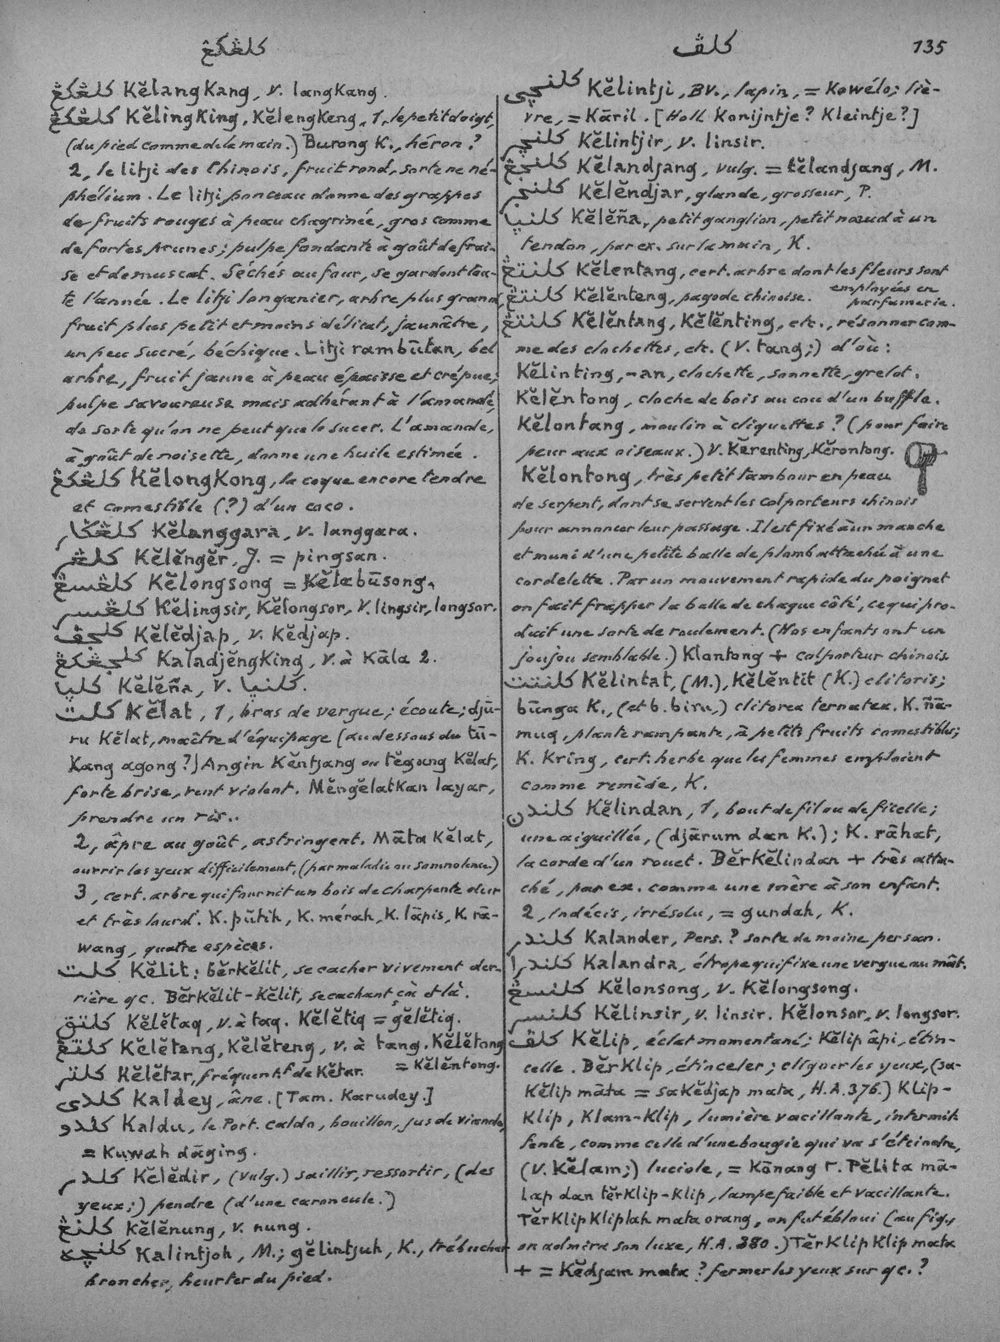 كلڠكڠ
كلڤ
135
كلڠكڠ Kĕlangkang, v. langkang.
كلڠكڠ Kĕlingking, Kĕlengkeng, 1, le petit doigt,
(du pied comme de la main.) Burong K., héron?
2, le litji des Chinois, fruit rond, sorte ne né-
phélium. Le litji ponceau donne des grappes
de fruits rouges à peau chagrinée, gros comme
de fortes prunes; pulpe fondante à goût de frai-
se et de muscat. Séchés au four, se gardent tou-
te l'année. Le litji longanier, arbre plus grand,
fruit plus petit et moins délicat, jaunâtre,
un peu sucré, béchique. Litji rambūtan, bel
arbre, fruit jaune à peau épaisse et crépue;
pulpe savoureuse mais adhérant à l'amande,
de sorte qu'on ne peut que le sucer. L'amande,
à goût de noisette, donne une huile estimée.
كلڠكڠ Kĕlongkong, la coque encore tendre
et comestible (?) d'un coco.
كلڠݢار Kĕlanggara, v. langgara.
كلڠر Kĕlĕngĕr, J. = pingsan.
كلڠسڠ Kĕlongsong = Kĕlabūsong.
كلڠسر Kĕlingsir, Kĕlongsor, v. lingsir, longsor.
كلجڤ Kĕlĕdjap, v. Kĕdjap.
كلجڠكڠ Kaladjĕngking, v. à Kāla 2.
كليا Kĕlĕña, v. كلنيا.
كلت Kĕlat, 1, bras de vergue; écoute; djū-
ru Kĕlat, maître d'équipage (au dessous du tū-
kang agong?) Angin Kĕntjang ou tĕgoung Kĕlat,
forte brise, vent violent. Mĕngĕlatkan layar,
prendre un ris.
2, âpre au goût, astringent. Māta Kĕlat,
ouvrir les yeux difficilement, (par maladie ou somnolence)
3, cert. arbre qui fournit un bois de charpente dur
et très lourd. K. pūtih, K. mérah, K. lāpis, K. rā-
wang, quatre espèces.
كلت Kĕlit; bĕrkĕlit, se cacher vivement der-
rière qc. Bĕrkĕlit-Kĕlit, se cachant çà et là.
كلتق Kĕlĕtaq, v. à taq. Kĕlĕtiq = gĕlĕtiq.
كلتڠ Kĕlĕtang, Kĕlĕteng, v. à tang. Kĕlĕtong
= Kĕlĕntong.
كلتر Kĕlĕtar, fréquentf. de Kĕtar.
كلدى Kaldey, âne. [Tam. Karudey.]
كلدو Kaldu, le Port. caldo, bouillon, jus de viande,
= Kuwah dāging.
كلدر Kĕlĕdir, (vulg.) saillir, ressortir, (des
yeux;) pendre (d'une caroncule.)
كلنڠ Kĕlĕnung, v. nung.
كلنچه Kalintjoh, M.; gĕlintjuh, K., trébucher
broncher, heurter du pied.
كلنچي Kĕlintji, BV., lapin, = Kowélo; liè-
vre, = Kāril. [Holl Konijntje? Kleintje?]
كلنجير Kĕlintjir, v. linsir.
كلنجڠ Kĕlandjang, vulg. = tĕlandjang, M.
كلنجر Kĕlĕndjar, glande, grosseur, P.
كلنيا Kĕlĕña, petit ganglion, petit nœud à un
tendon, par ex. sur la main, K.
كلنتڠ Kĕlentang, cert. arbre dont les fleurs sont
employées en
parfumerie.
كلنتڠ Kĕlĕnteng, pagode chinoise.
كلنتڠ Kĕlĕntang, Kĕlĕnting, etc., résonner com-
me des clochettes, etc. (V. tang;) d'où:
Kĕlinting, -an, clochette, sonnette, grelot.
Kĕlĕntong, cloche de bois au cou d'un buffle.
Kĕlontang, moulin à cliquettes? (pour faire
peur aux oiseaux.) V. Kĕrenting, Kĕrontong.
Kĕlontong, très petit tambour en peau
de serpent, dont se servent les colporteurs chinois
pour annoncer leur passage. Il est fixé à un manche
et muni d'une petite balle de plomb attachée à une
cordelette. Par un mouvement rapide du poignet
on fait frapper la balle de chaque côté, ce qui pro-
duit une sorte de roulement. (Nos enfants ont un
joujou semblable.) Klontong + colporteur chinois
كلنتت Kĕlintat, (M.), Kĕlĕntit (K.) clitoris;
būnga K., (et b. biru,) clitorea ternatea. K. ñā-
muq, plante rampante, à petits fruits comestibles;
K. Kring, cert. herbe que les femmes emploient
comme remède, K.
كلندن Kĕlindan, 1, bout de fil ou de ficelle;
une aiguillée, (djārum dan K.); K. rāhat,
la corde d'un rouet. Bĕrkĕlindan + très atta-
ché, par ex. comme une mère à son enfant.
2, indécis, irrésolu, = gundah, K.
كلندر Kalander, Pers.? sorte de moine persan.
كلندرا Kalandra, étrope qui fixe une vergue au mât.
كلنسڠ Kĕlonsong, v. Kĕlongsong.
كلنسر Kĕlinsir, v. linsir. Kĕlonsor, v. longsor.
كلڤ Kĕlip, éclat momentané; Kĕlip āpi, étin-
celle. Bĕrklip, étinceler; cligner les yeux, (sa-
kĕlip māta = sakĕdjap mata, H.A. 376.) Klip-
Klip, Klam-Klip, lumière vacillante, intermit
tente, comme celle d'une bougie qui va s'éteindre,
(v. Kĕlam;) luciole, = Kānang r. Pĕlita mā-
lap dan tĕrklip-klip, lampe faible et vacillante.
Tĕrklip kliplah mata orang, on fut ébloui (au fig.,
on admira son luxe, H.A. 380.) Tĕrklip klip mata
+ = Kĕdjam mata? fermer les yeux sur qc.?